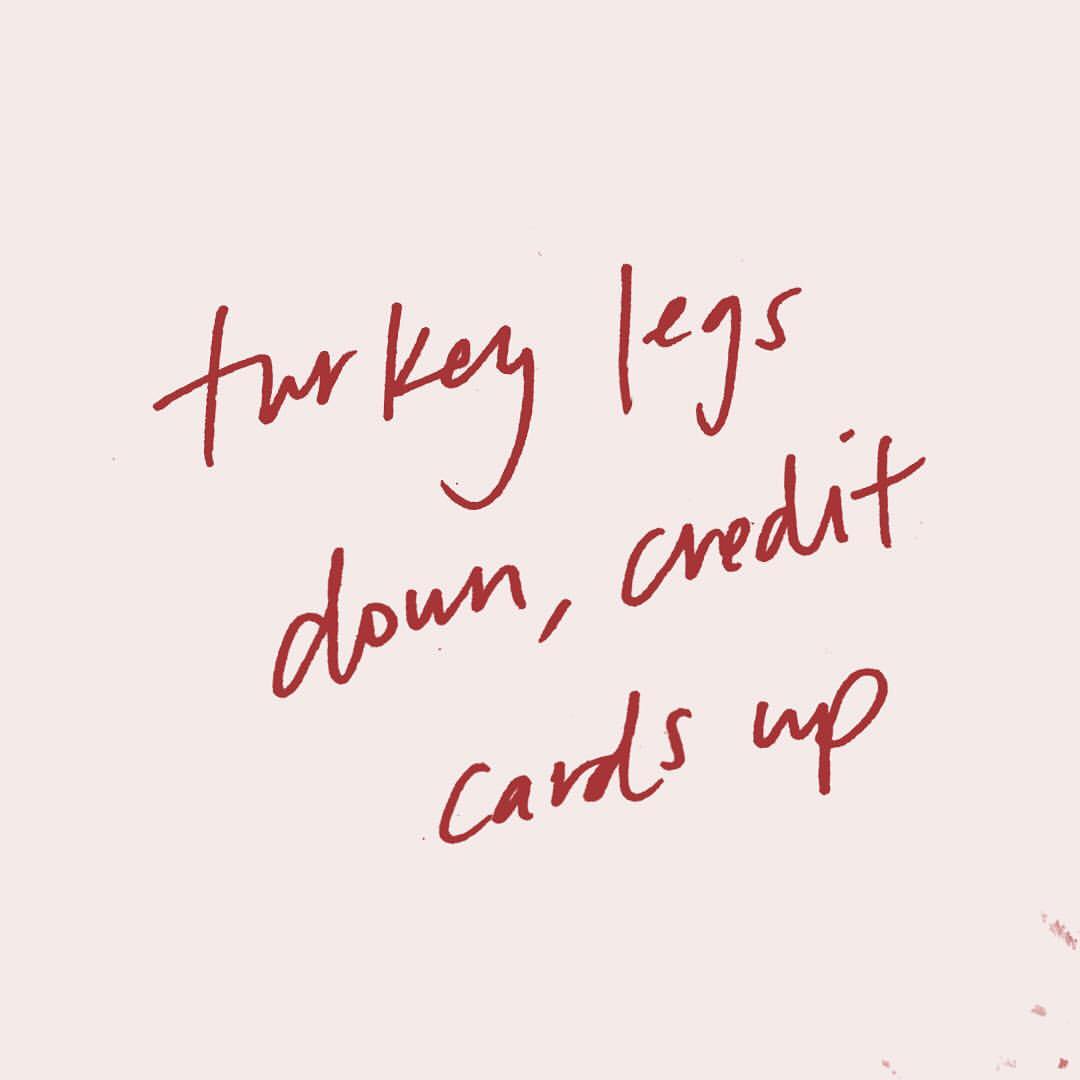 turkey legs
down, credit
cards up